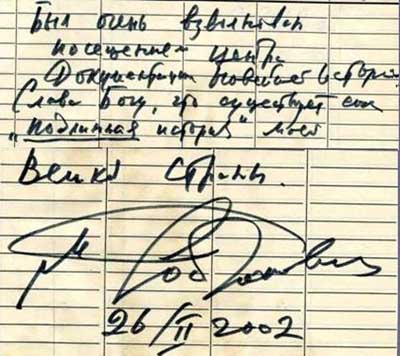 Был очень взволнован
посещением Центра
Документации новейшей истории
Слава Богу, что существует
"подлинная история" моей
страны.
26/II 2002